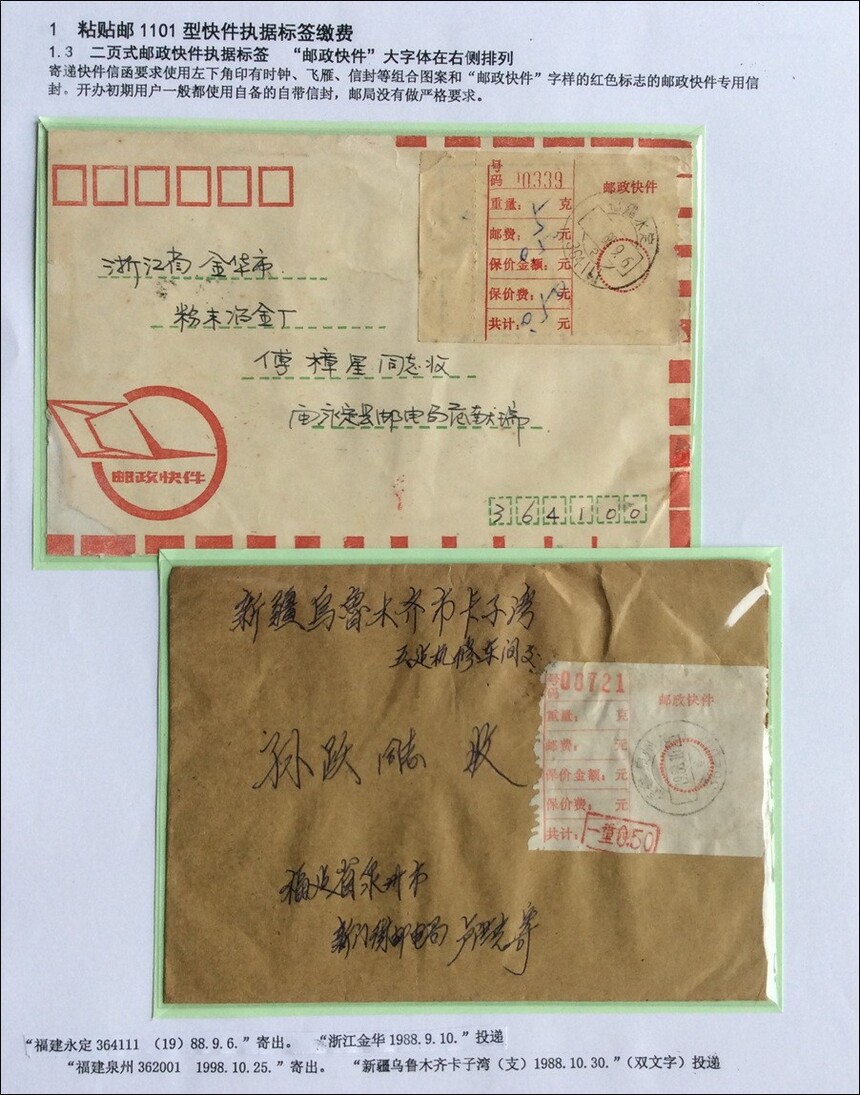 1 粘贴邮1101型快件执据标签缴费
1.3 二页式邮政快件执据标签 “邮政快件”大字体在右侧排列
寄递快件信函要求使用左下角印有时钟、飞雁、信封等组合图案和“邮政快件”字样的红色标志的邮政快件专用信
封。开办初期用户一般都使用自备的自带信封，邮局没有做严格要求。
号码 10339
邮政快件
重量： 5 克
邮费： 元
保价金额： 元
保价费： 元
共计：0.50 元
浙江省金华市
粉末冶金厂
傅樟星同志收
邮政快件
364100
新疆乌鲁木齐市卡子湾
机修车间
号码 00721
邮政快件
重量： 克
邮费： 元
保价金额： 元
保价费： 元
共计： 0.50
孙跃同志 收
福建省泉州市
“福建永定364111 （19）88.9.6.”寄出。 “浙江金华1988.9.10.”投递
“福建泉州362001 1998.10.25.”寄出。 “新疆乌鲁木齐卡子湾（支）1988.10.30.”（双文字）投递